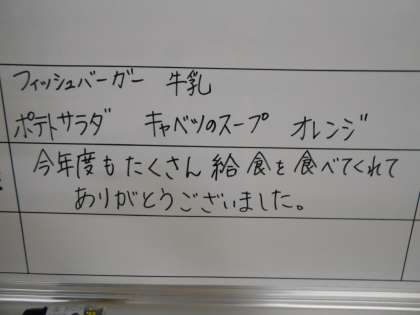 フィッシュバーガー 牛乳
ポテトサラダ キャベツのスープ オレンジ
今年度もたくさん給食を食べてくれて
ありがとうございました。